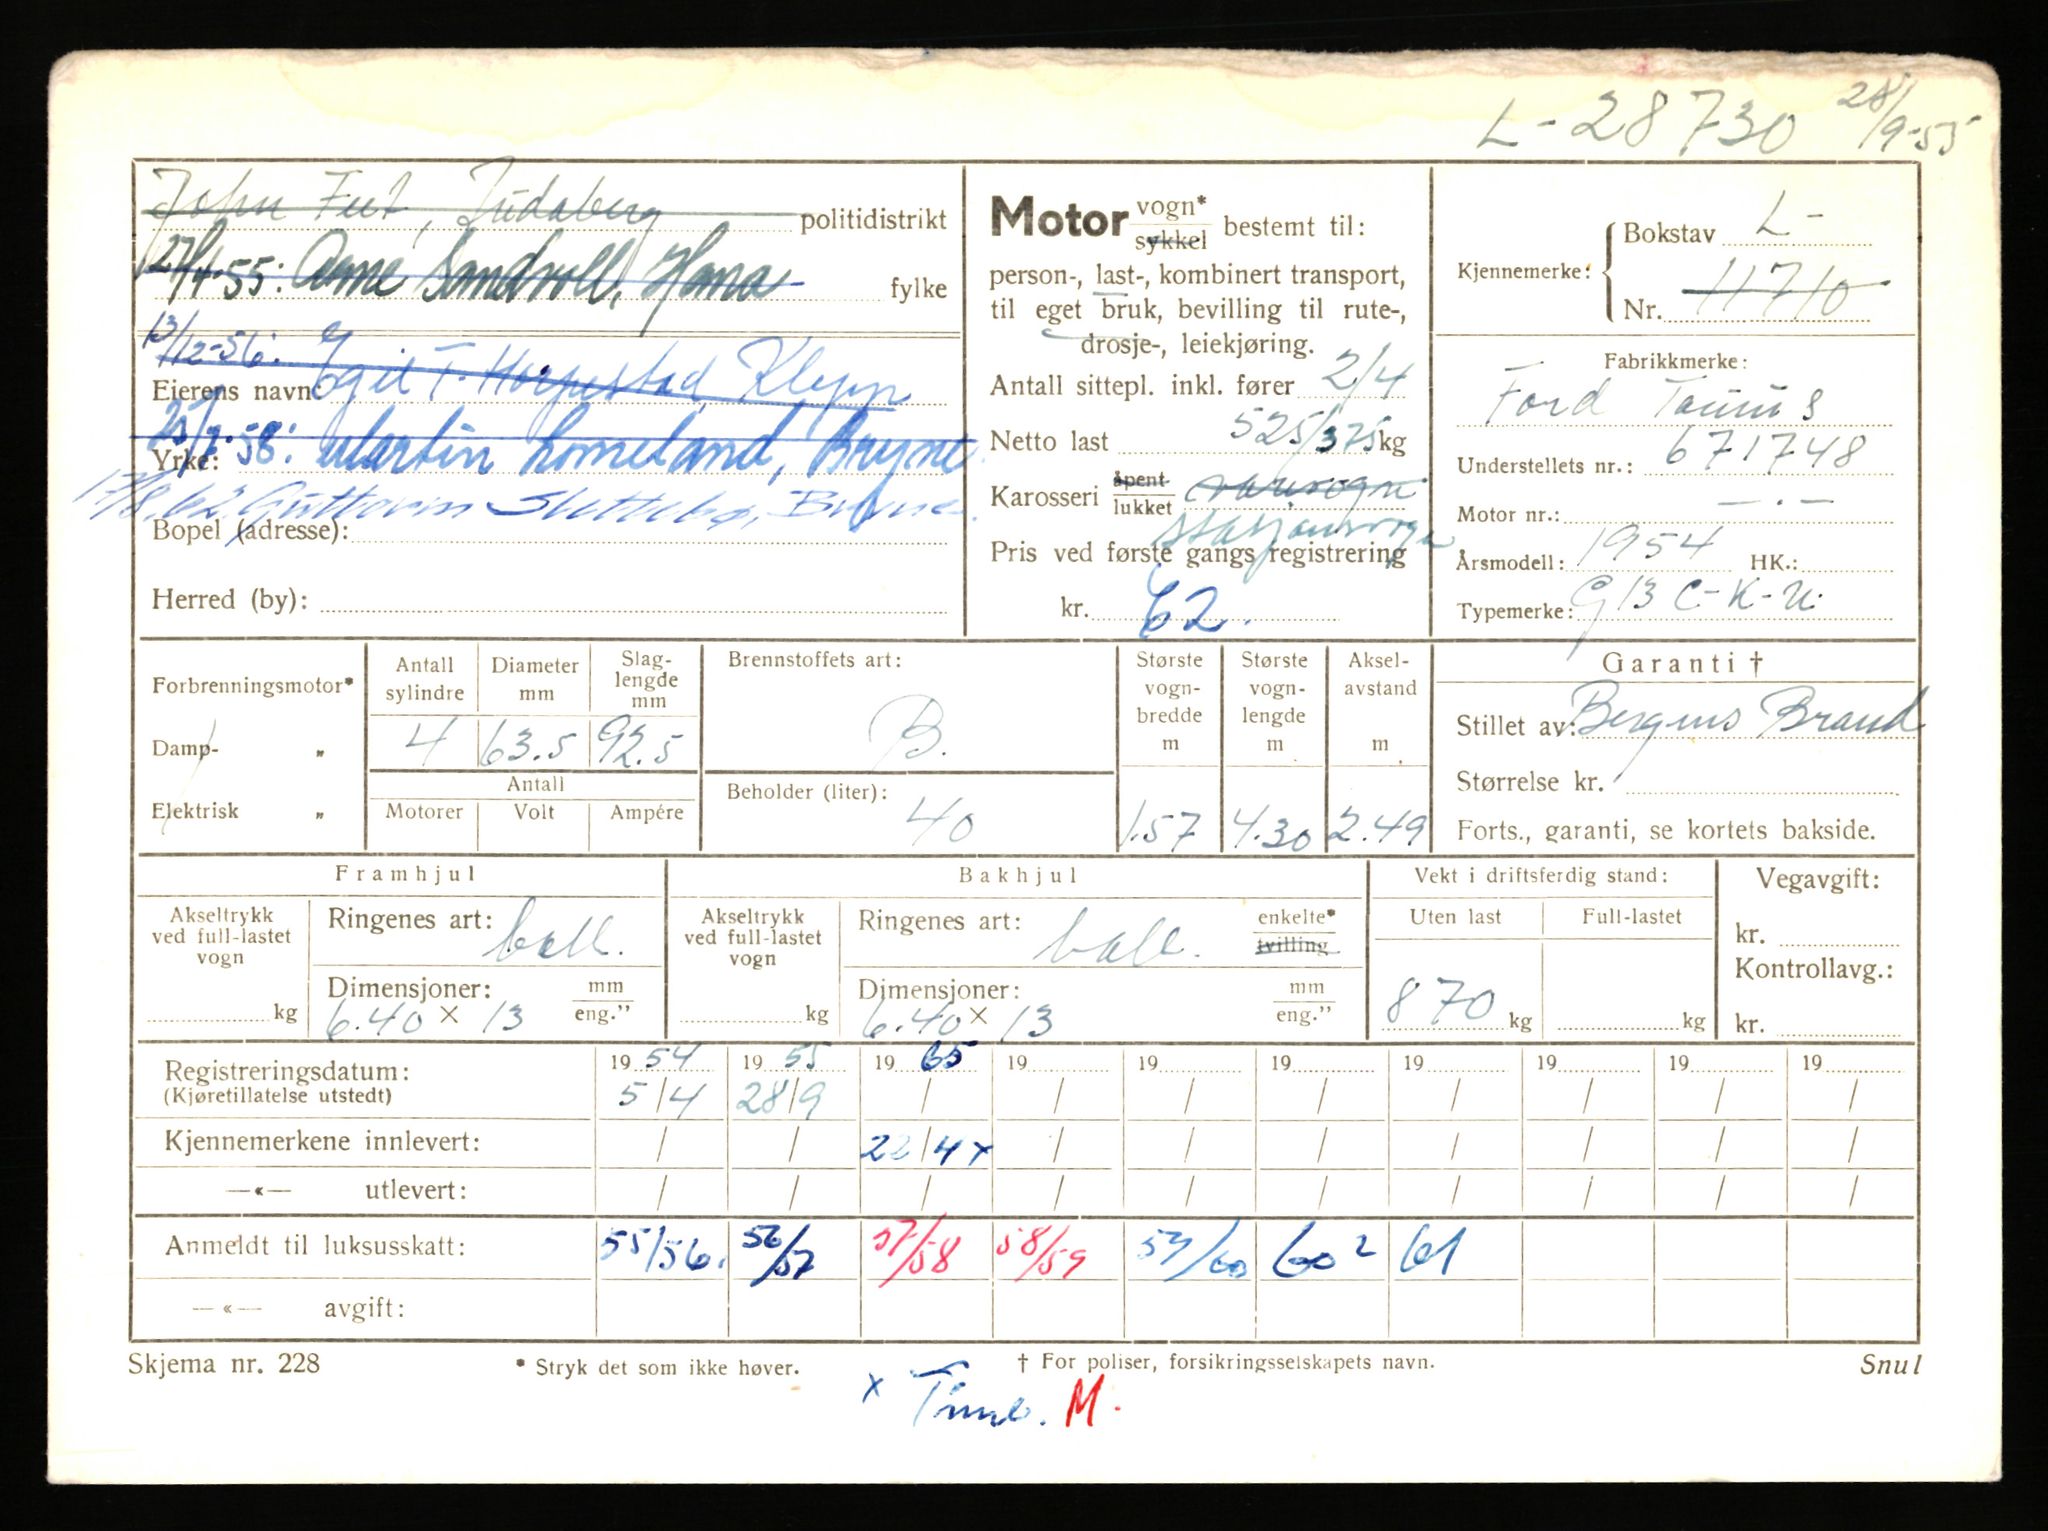 L-28730 28/9-55
John Feet, Judaberg politidistrikt
27/4-55: Arne Sandvoll, Hana fylke
13/12-56: Egil T. Horpestad Klepp
Eierens navn:
25/7-58: Martin Lomeland, Bryne
Yrke:
17/8.62 Guttorm Slettebø, Bryne.
Bopel (adresse):
Herred (by):
Motor vogn* sykkel bestemt til:
person-, last-, kombinert transport,
til eget bruk, bevilling til rute-,
drosje-, leiekjøring.
Antall sittepl. inkl. fører 2/4
Netto last 525/375 kg
Karosseri åpent lukket varevogn
stasjonsvogn
Pris ved første gangs registrering
kr. 62.
Kjennemerke: Bokstav L-
Nr. 11710
Fabrikkmerke:
Ford Taunus
Understellets nr.: 671748
Motor nr.: —.—
Årsmodell: 1954 HK.:
Typemerke: G13 C-K-U.
Forbrenningsmotor*
Damp- „
Elektrisk „
Antall sylindre 4
Diameter mm 63.5
Slag-lengde mm 92.5
Antall
Motorer Volt Ampére
Brennstoffets art:
B.
Beholder (liter):
40
Største vogn-bredde m 1.57
Største vogn-lengde m 4.30
Aksel-avstand m 2.49
Garanti †
Stillet av: Bergens Brand
Størrelse kr.
Forts., garanti, se kortets bakside.
Framhjul
Akseltrykk ved full-lastet vogn kg
Ringenes art: ball.
Dimensjoner: mm eng."
6.40 x 13
Bakhjul
Akseltrykk ved full-lastet vogn kg
Ringenes art: ball. enkelte* tvilling
Dimensjoner: mm eng."
6.40 x 13
Vekt i driftsferdig stand:
Uten last Full-lastet
870 kg kg
Vegavgift:
kr.
Kontrollavg.:
kr.
Registreringsdatum: 19 54 19 55 19 65 19 19 19 19 19 19 19
(Kjøretillatelse utstedt) 5/4 28/9 / / / / / / / /
Kjennemerkene innlevert: / / 22/4 x / / / / / / /
—«— utlevert: / / / / / / / / / /
Anmeldt til luksusskatt: 55/56. 56/57 57/58 58/59 59/60 60² 61
—«— avgift:
Skjema nr. 228 * Stryk det som ikke høver. † For poliser, forsikringsselskapets navn. Snul
x M.